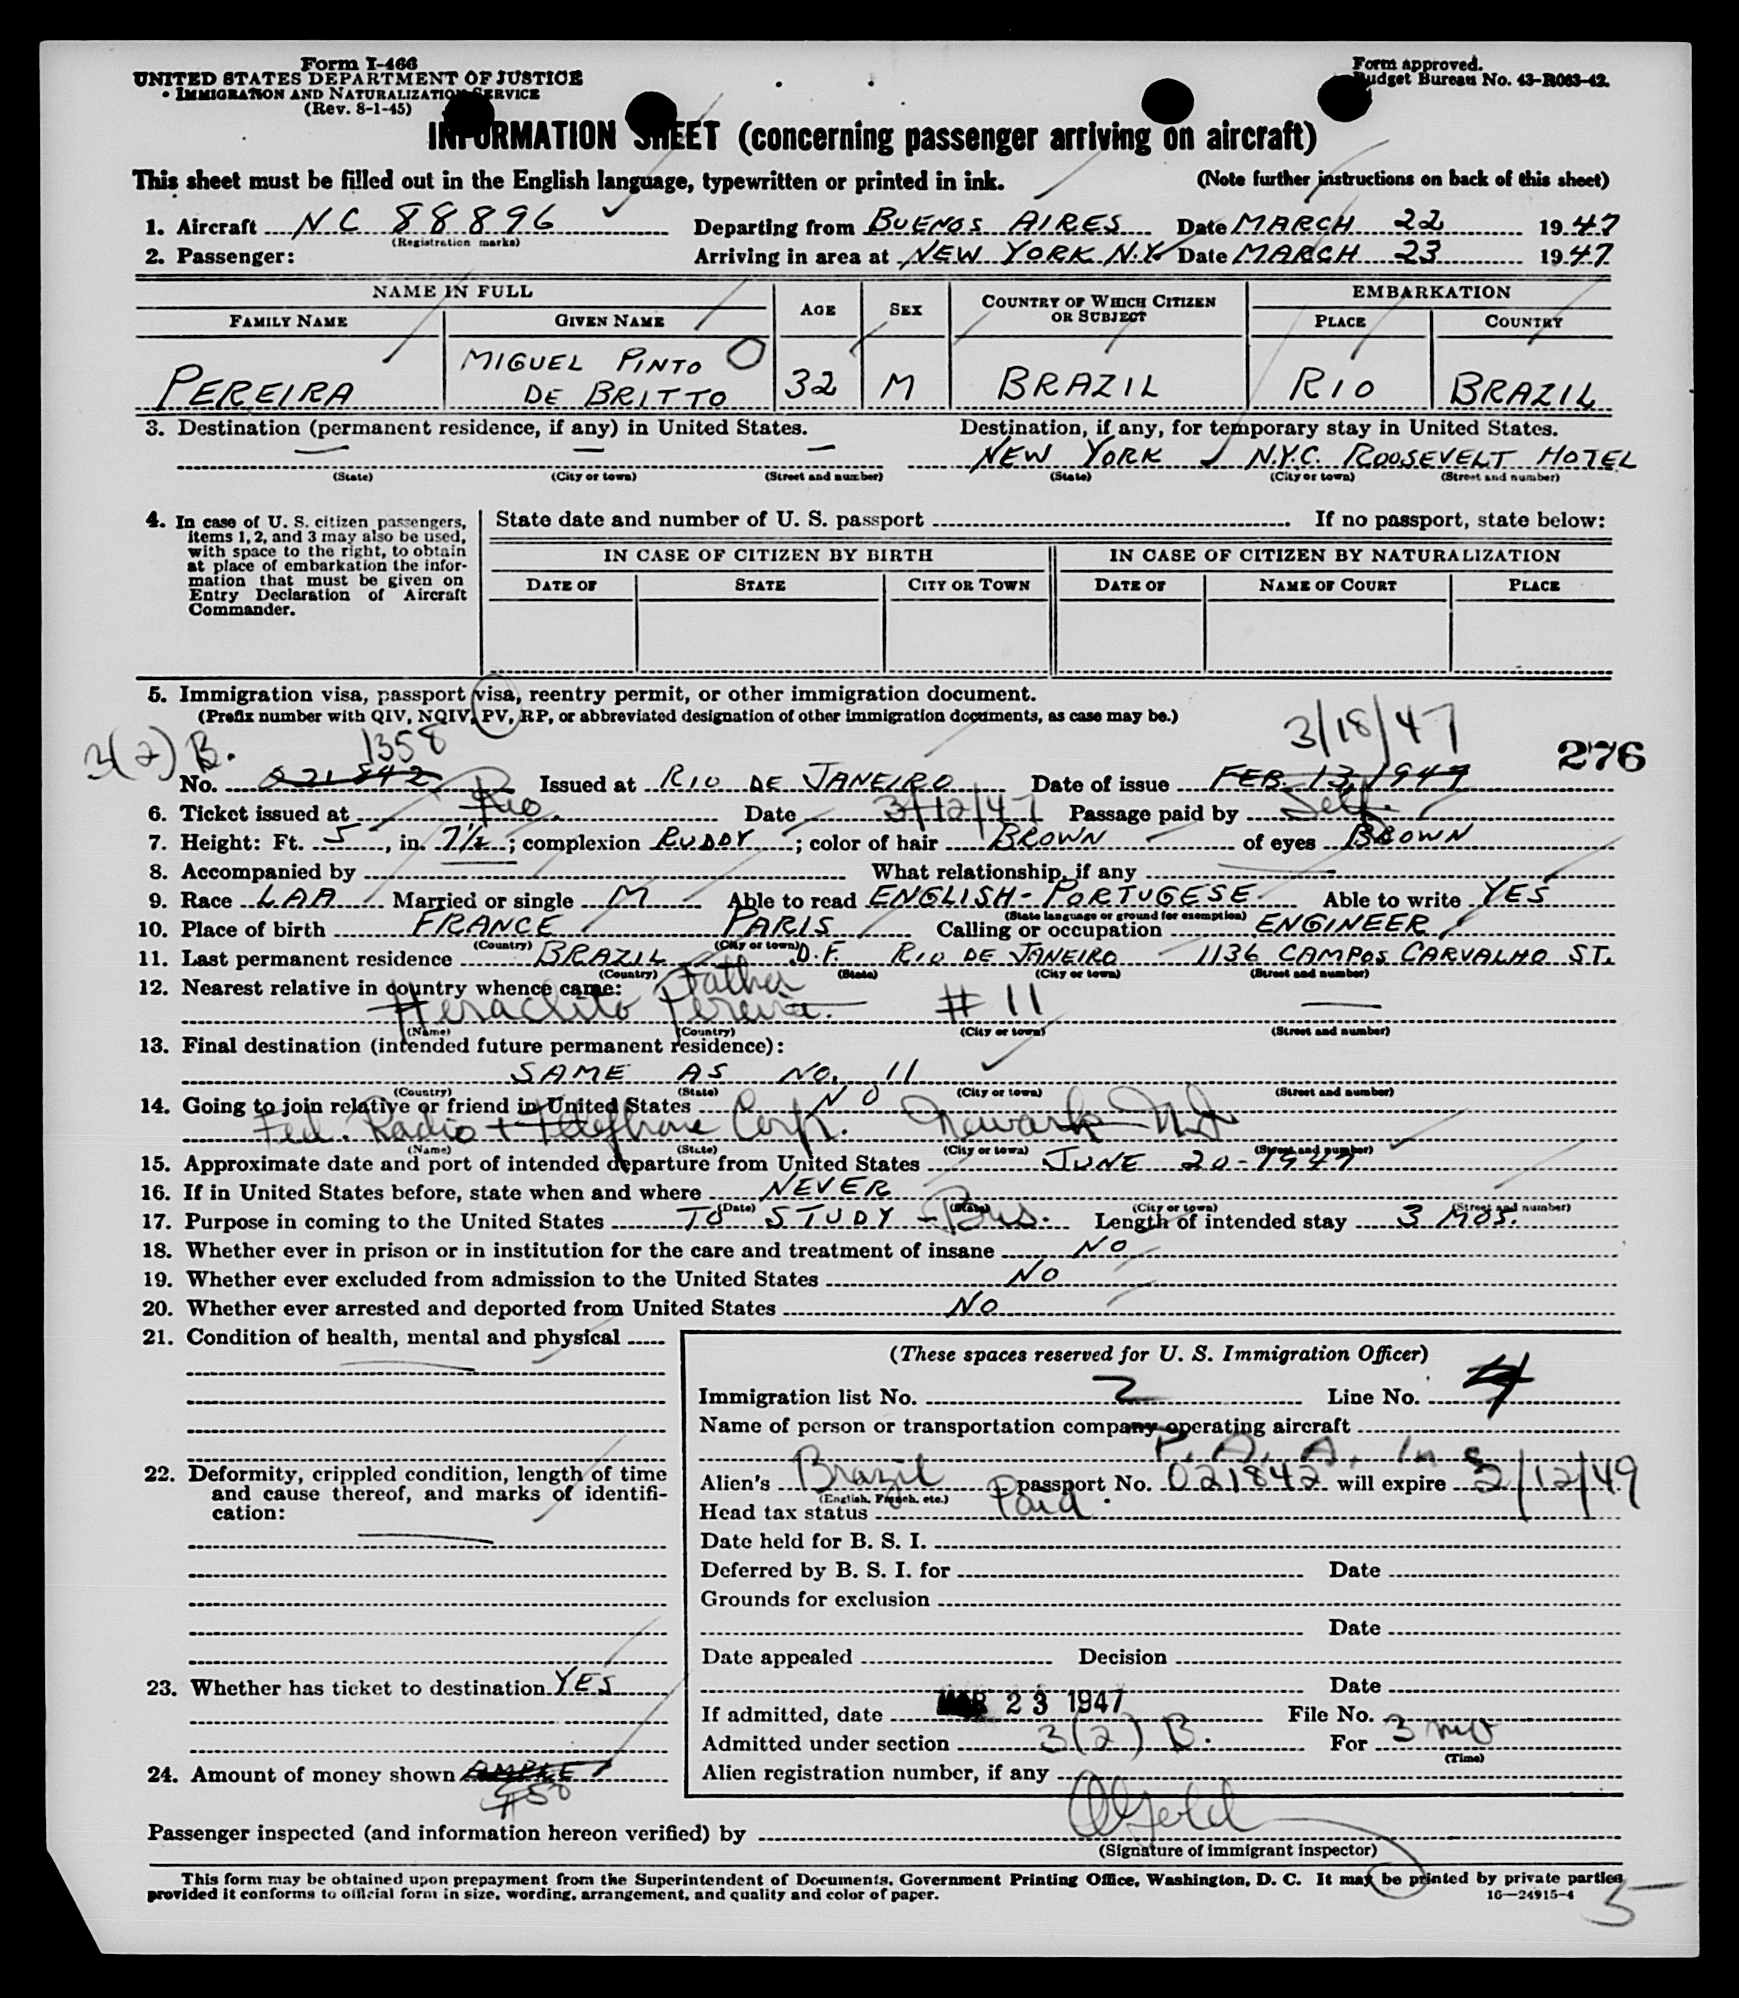 Form I-466
UNITED STATES DEPARTMENT OF JUSTICE
IMMIGRATION AND NATURALIZATION SERVICE
(Rev. 8-1-45)
Form approved.
Budget Bureau No. 43-R063-42.
INFORMATION SHEET (concerning passenger arriving on aircraft)
This sheet must be filled out in the English language, typewritten or printed in ink. (Note further instructions on back of this sheet)
1. Aircraft NC 88896 Departing from BUENOS AIRES Date MARCH 22 1947
(Registration marks)
2. Passenger: Arriving in area at NEW YORK N.Y. Date MARCH 23 1947
NAME IN FULL AGE SEX COUNTRY OF WHICH CITIZEN OR SUBJECT EMBARKATION
FAMILY NAME GIVEN NAME PLACE COUNTRY
MIGUEL PINTO
PEREIRA DE BRITTO 32 M BRAZIL RIO BRAZIL
3. Destination (permanent residence, if any) in United States. Destination, if any, for temporary stay in United States.
— — — NEW YORK N.Y.C. ROOSEVELT HOTEL
(State) (City or town) (Street and number) (State) (City or town) (Street and number)
4. In case of U. S. citizen passengers, items 1, 2, and 3 may also be used, with space to the right, to obtain at place of embarkation the information that must be given on Entry Declaration of Aircraft Commander.
State date and number of U. S. passport . If no passport, state below:
IN CASE OF CITIZEN BY BIRTH IN CASE OF CITIZEN BY NATURALIZATION
DATE OF STATE CITY OR TOWN DATE OF NAME OF COURT PLACE
5. Immigration visa, passport visa, reentry permit, or other immigration document.
(Prefix number with QIV, NQIV, PV, RP, or abbreviated designation of other immigration documents, as case may be.)
3(2) B. 1358 3/18/47 276
No. 021842 Issued at RIO DE JANEIRO Date of issue FEB. 13, 1947
6. Ticket issued at Rio. Date 3/12/47 Passage paid by Self.
7. Height: Ft. 5, in. 7½; complexion RUDDY; color of hair BROWN of eyes BROWN
8. Accompanied by What relationship, if any —
9. Race LAA Married or single M Able to read ENGLISH-PORTUGESE Able to write YES
(State language or ground for exemption)
10. Place of birth FRANCE PARIS Calling or occupation ENGINEER
(Country) (City or town)
11. Last permanent residence BRAZIL D.F. RIO DE JANEIRO 1136 CAMPOS CARVALHO ST.
(Country) (State) (City or town) (Street and number)
12. Nearest relative in country whence came: Father
Heraclito Pereira. # 11 —
(Name) (Country) (City or town) (Street and number)
13. Final destination (intended future permanent residence):
SAME AS NO. 11
(Country) (State) (City or town) (Street and number)
14. Going to join relative or friend in United States NO
Fed. Radio + Telephone Corp. Newark NJ
(Name) (State) (City or town) (Street and number)
15. Approximate date and port of intended departure from United States JUNE 20-1947
16. If in United States before, state when and where NEVER
(Date) (State) (City or town) (Street and number)
17. Purpose in coming to the United States TO STUDY - Bus. Length of intended stay 3 MOS.
18. Whether ever in prison or in institution for the care and treatment of insane NO
19. Whether ever excluded from admission to the United States NO
20. Whether ever arrested and deported from United States NO
21. Condition of health, mental and physical
22. Deformity, crippled condition, length of time and cause thereof, and marks of identification:
23. Whether has ticket to destination YES
24. Amount of money shown AMPLE
$50
(These spaces reserved for U. S. Immigration Officer)
Immigration list No. 2 Line No. 4
Name of person or transportation company operating aircraft
P. A. A. Inc
Alien's Brazil passport No. 021842 will expire 2/12/49
(English, French, etc.)
Head tax status Paid.
Date held for B. S. I.
Deferred by B. S. I. for Date
Grounds for exclusion
Date
Date appealed Decision
Date
If admitted, date MAR 23 1947 File No.
Admitted under section 3(2) B. For 3 mo
(Time)
Alien registration number, if any
Passenger inspected (and information hereon verified) by
(Signature of immigrant inspector)
This form may be obtained upon prepayment from the Superintendent of Documents, Government Printing Office, Washington, D. C. It may be printed by private parties
provided it conforms to official form in size, wording, arrangement, and quality and color of paper. 16—24915-4
5